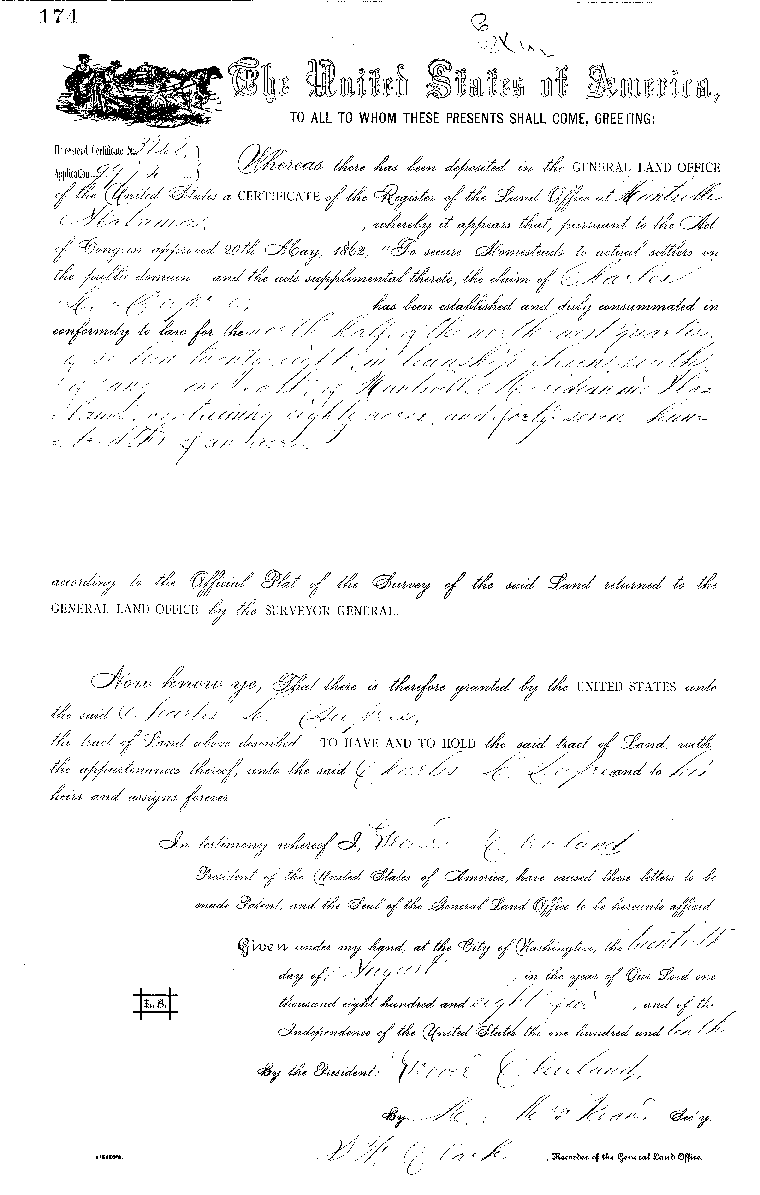 174
The United States of America,
TO ALL TO WHOM THESE PRESENTS SHALL COME, GREETING:
Homestead Certificate No.
Application
Whereas there has been deposited in the GENERAL LAND OFFICE
of the United States a CERTIFICATE of the Register of the Land Office at Huntsville
Alabama, , whereby it appears that, pursuant to the Act
of Congress approved 20th May, 1862, "To secure Homesteads to actual settlers on
the public domain and the acts supplemental thereto, the claim of Charles
has been established and duly consummated in
conformity to law for the north half of the north west quarter
of section twenty eight, in township south
of range of Huntsville Meridian in Ala
bama, containing eighty acres, and forty seven hun
dredths of an acre
according to the Official Plat of the Survey of the said Land returned to the
GENERAL LAND OFFICE by the SURVEYOR GENERAL.
Now know ye, That there is therefore granted by the UNITED STATES unto
the said Charles
the tract of Land above described TO HAVE AND TO HOLD the said tract of Land, with
the appurtenances thereof, unto the said Charles and to his
heirs and assigns forever
In testimony whereof I, Grover Cleveland
President of the United States of America, have caused these letters to be
made Patent, and the Seal of the General Land Office to be hereunto affixed
Given under my hand, at the City of Washington, the
day of August , in the year of Our Lord one
thousand eight hundred and eighty five , and of the
Independence of the United States the one hundred and tenth
L. S.
By the President: Grover Cleveland,
By M. McKean Sec'y.
Clark , Recorder of the General Land Office.